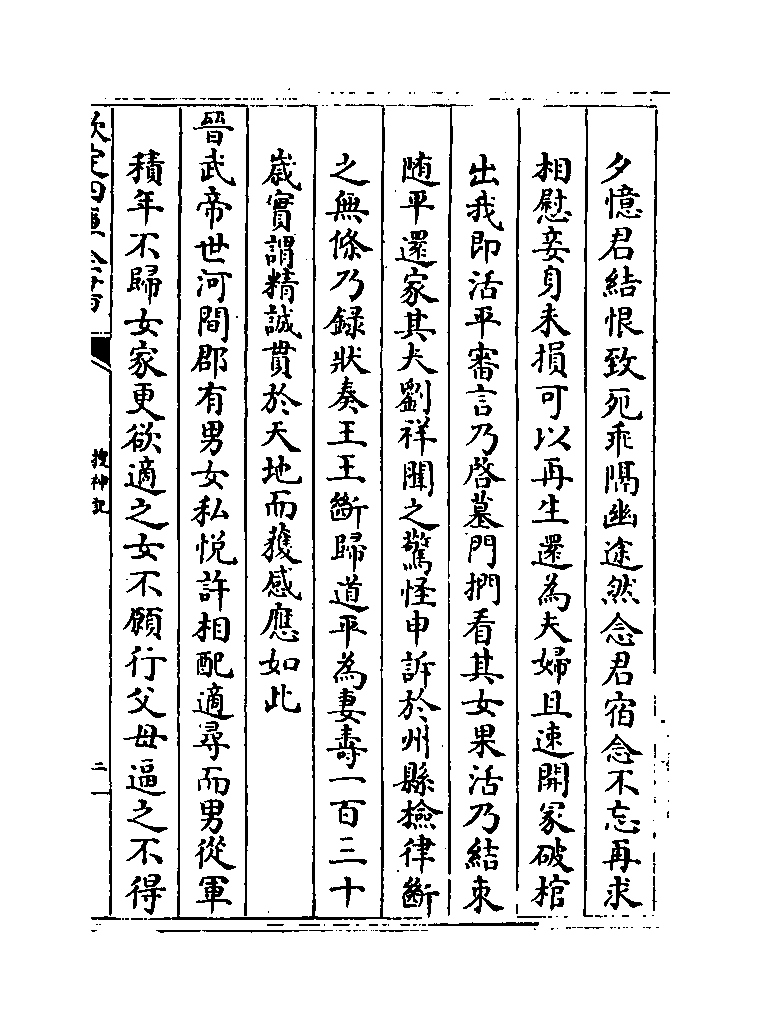 夕憶君結恨致死乖隔幽途然念君宿念不忘再求
相慰妾身未損可以再生還為夫婦且速開冢破棺
出我即活平審言乃啓墓門捫看其女果活乃結束
随平還家其夫劉祥聞之驚怪申訴於州縣檢律斷
之無條乃録狀奏王王斷歸道平為妻壽一百三十
歳實謂精誠貫於天地而獲感應如此
晉武帝世河間郡有男女私悦許相配適尋而男從軍
積年不歸女家更欲適之女不願行父母逼之不得
欽定四庫全書
搜神記